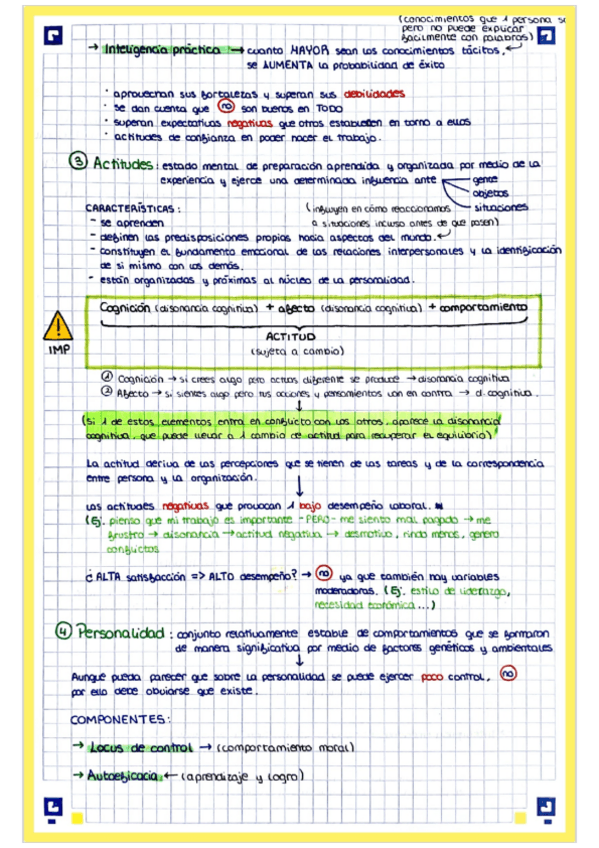 (conocimientos que 1 persona
pero no puede explicar
fácilmente con palabras)
→ Inteligencia práctica → cuanto MAYOR sean los conocimientos tácitos,
se AUMENTA la probabilidad de éxito
· aprovechan sus fortalezas y superan sus debilidades
· se dan cuenta que no son buenos en TODO
· superan expectativas negativas que otros establecen en torno a ellos
· actitudes de confianza en poder hacer el trabajo.
③ Actitudes: estado mental de preparación aprendida y organizada por medio de la
experiencia y ejerce una determinada influencia ante gente
objetos
CARACTERÍSTICAS: (influyen en cómo reaccionamos situaciones
- se aprenden a situaciones incluso antes de que pasen)
- definen las predisposiciones propias hacia aspectos del mundo.
- constituyen el fundamento emocional de las relaciones interpersonales y la identificación
de si mismo con los demás.
- están organizadas y próximas al núcleo de la personalidad.
Cognición (disonancia cognitiva) + afecto (disonancia cognitiva) + comportamiento
ACTITUD
(sujeta a cambio)
IMP
① Cognición → si crees algo pero actuas diferente se produce → disonancia cognitiva
② Afecto → si sientes algo pero tus acciones y pensamientos van en contra → d. cognitiva.
(si 1 de estos elementos entra en conflicto con los otros, aparece la disonancia
cognitiva, que puede llevar a 1 cambio de actitud para recuperar el equilibrio)
La actitud deriva de las percepciones que se tienen de las tareas y de la correspondencia
entre persona y la organización.
Las actitudes negativas que provocan 1 bajo desempeño laboral.
(Ej. pienso que mi trabajo es importante -PERO- me siento mal pagado → me
frustro → disonancia → actitud negativa → desmotivo, rindo menos, genero
conflictos
¿ALTA satisfacción => ALTO desempeño? → no ya que también hay variables
moderadoras. (Ej. estilo de liderazgo,
necesidad económica...)
④ Personalidad: conjunto relativamente estable de comportamientos que se forman
de manera significativa por medio de factores genéticos y ambientales
Aunque pueda parecer que sobre la personalidad se puede ejercer poco control, no
por ello debe obviarse que existe.
COMPONENTES:
→ Locus de control → (comportamiento moral)
→ Autoeficacia ← (aprendizaje y logro)